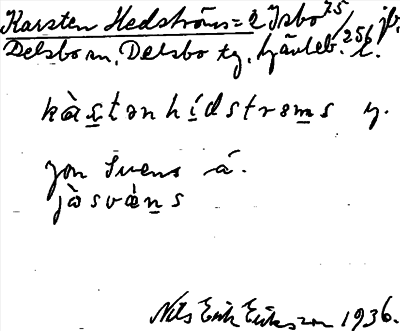 Karsten Hedströms = 2 Isbo 7.5 jb.
Delsbo sn, Delsbo tg, Gävleb. l. 256
kàstən hídstrəms y.
Jon Svens å.
jò svæ̀ns
Nils Erik Eriksson 1936.